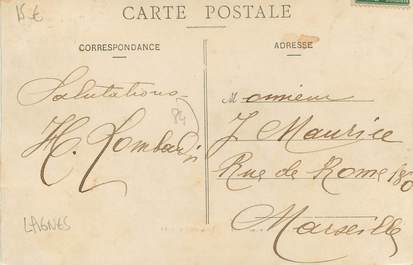 15 €
CARTE POSTALE
CORRESPONDANCE
ADRESSE
Salutations
84
H. Lombardi
LAGNES
Monsieur
J Maurice
Rue de Rome 180
Marseille